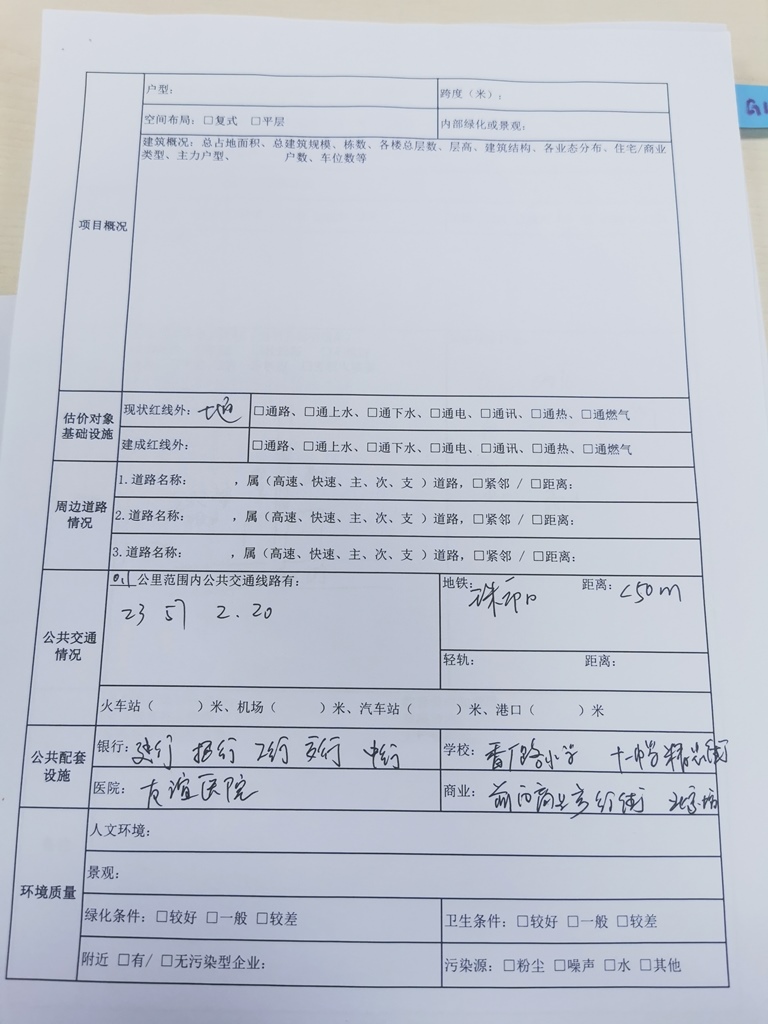 户型：
跨度（米）：
空间布局：□复式 □平层
内部绿化或景观：
项目概况
建筑概况：总占地面积、总建筑规模、栋数、各楼总层数、层高、建筑结构、各业态分布、住宅/商业
类型、主力户型、 户数、车位数等
估价对象
基础设施
现状红线外：七通
□通路、□通上水、□通下水、□通电、□通讯、□通热、□通燃气
建成红线外：
□通路、□通上水、□通下水、□通电、□通讯、□通热、□通燃气
周边道路
情况
1.道路名称： ，属（高速、快速、主、次、支 ）道路，□紧邻 / □距离：
2.道路名称： ，属（高速、快速、主、次、支 ）道路，□紧邻 / □距离：
3.道路名称： ，属（高速、快速、主、次、支 ）道路，□紧邻 / □距离：
公共交通
情况
公里范围内公共交通线路有：
23 57 2.20
地铁：珠市口 距离：<50m
轻轨： 距离：
火车站（ ）米、机场（ ）米、汽车站（ ）米、港口（ ）米
公共配套
设施
银行：建行 招行 工行 交行 中行
学校：香厂路小学 十一中学
医院：友谊医院
商业：前门商业步行街
环境质量
人文环境：
景观：
绿化条件：□较好 □一般 □较差
卫生条件：□较好 □一般 □较差
附近 □有/ □无污染型企业：
污染源：□粉尘 □噪声 □水 □其他